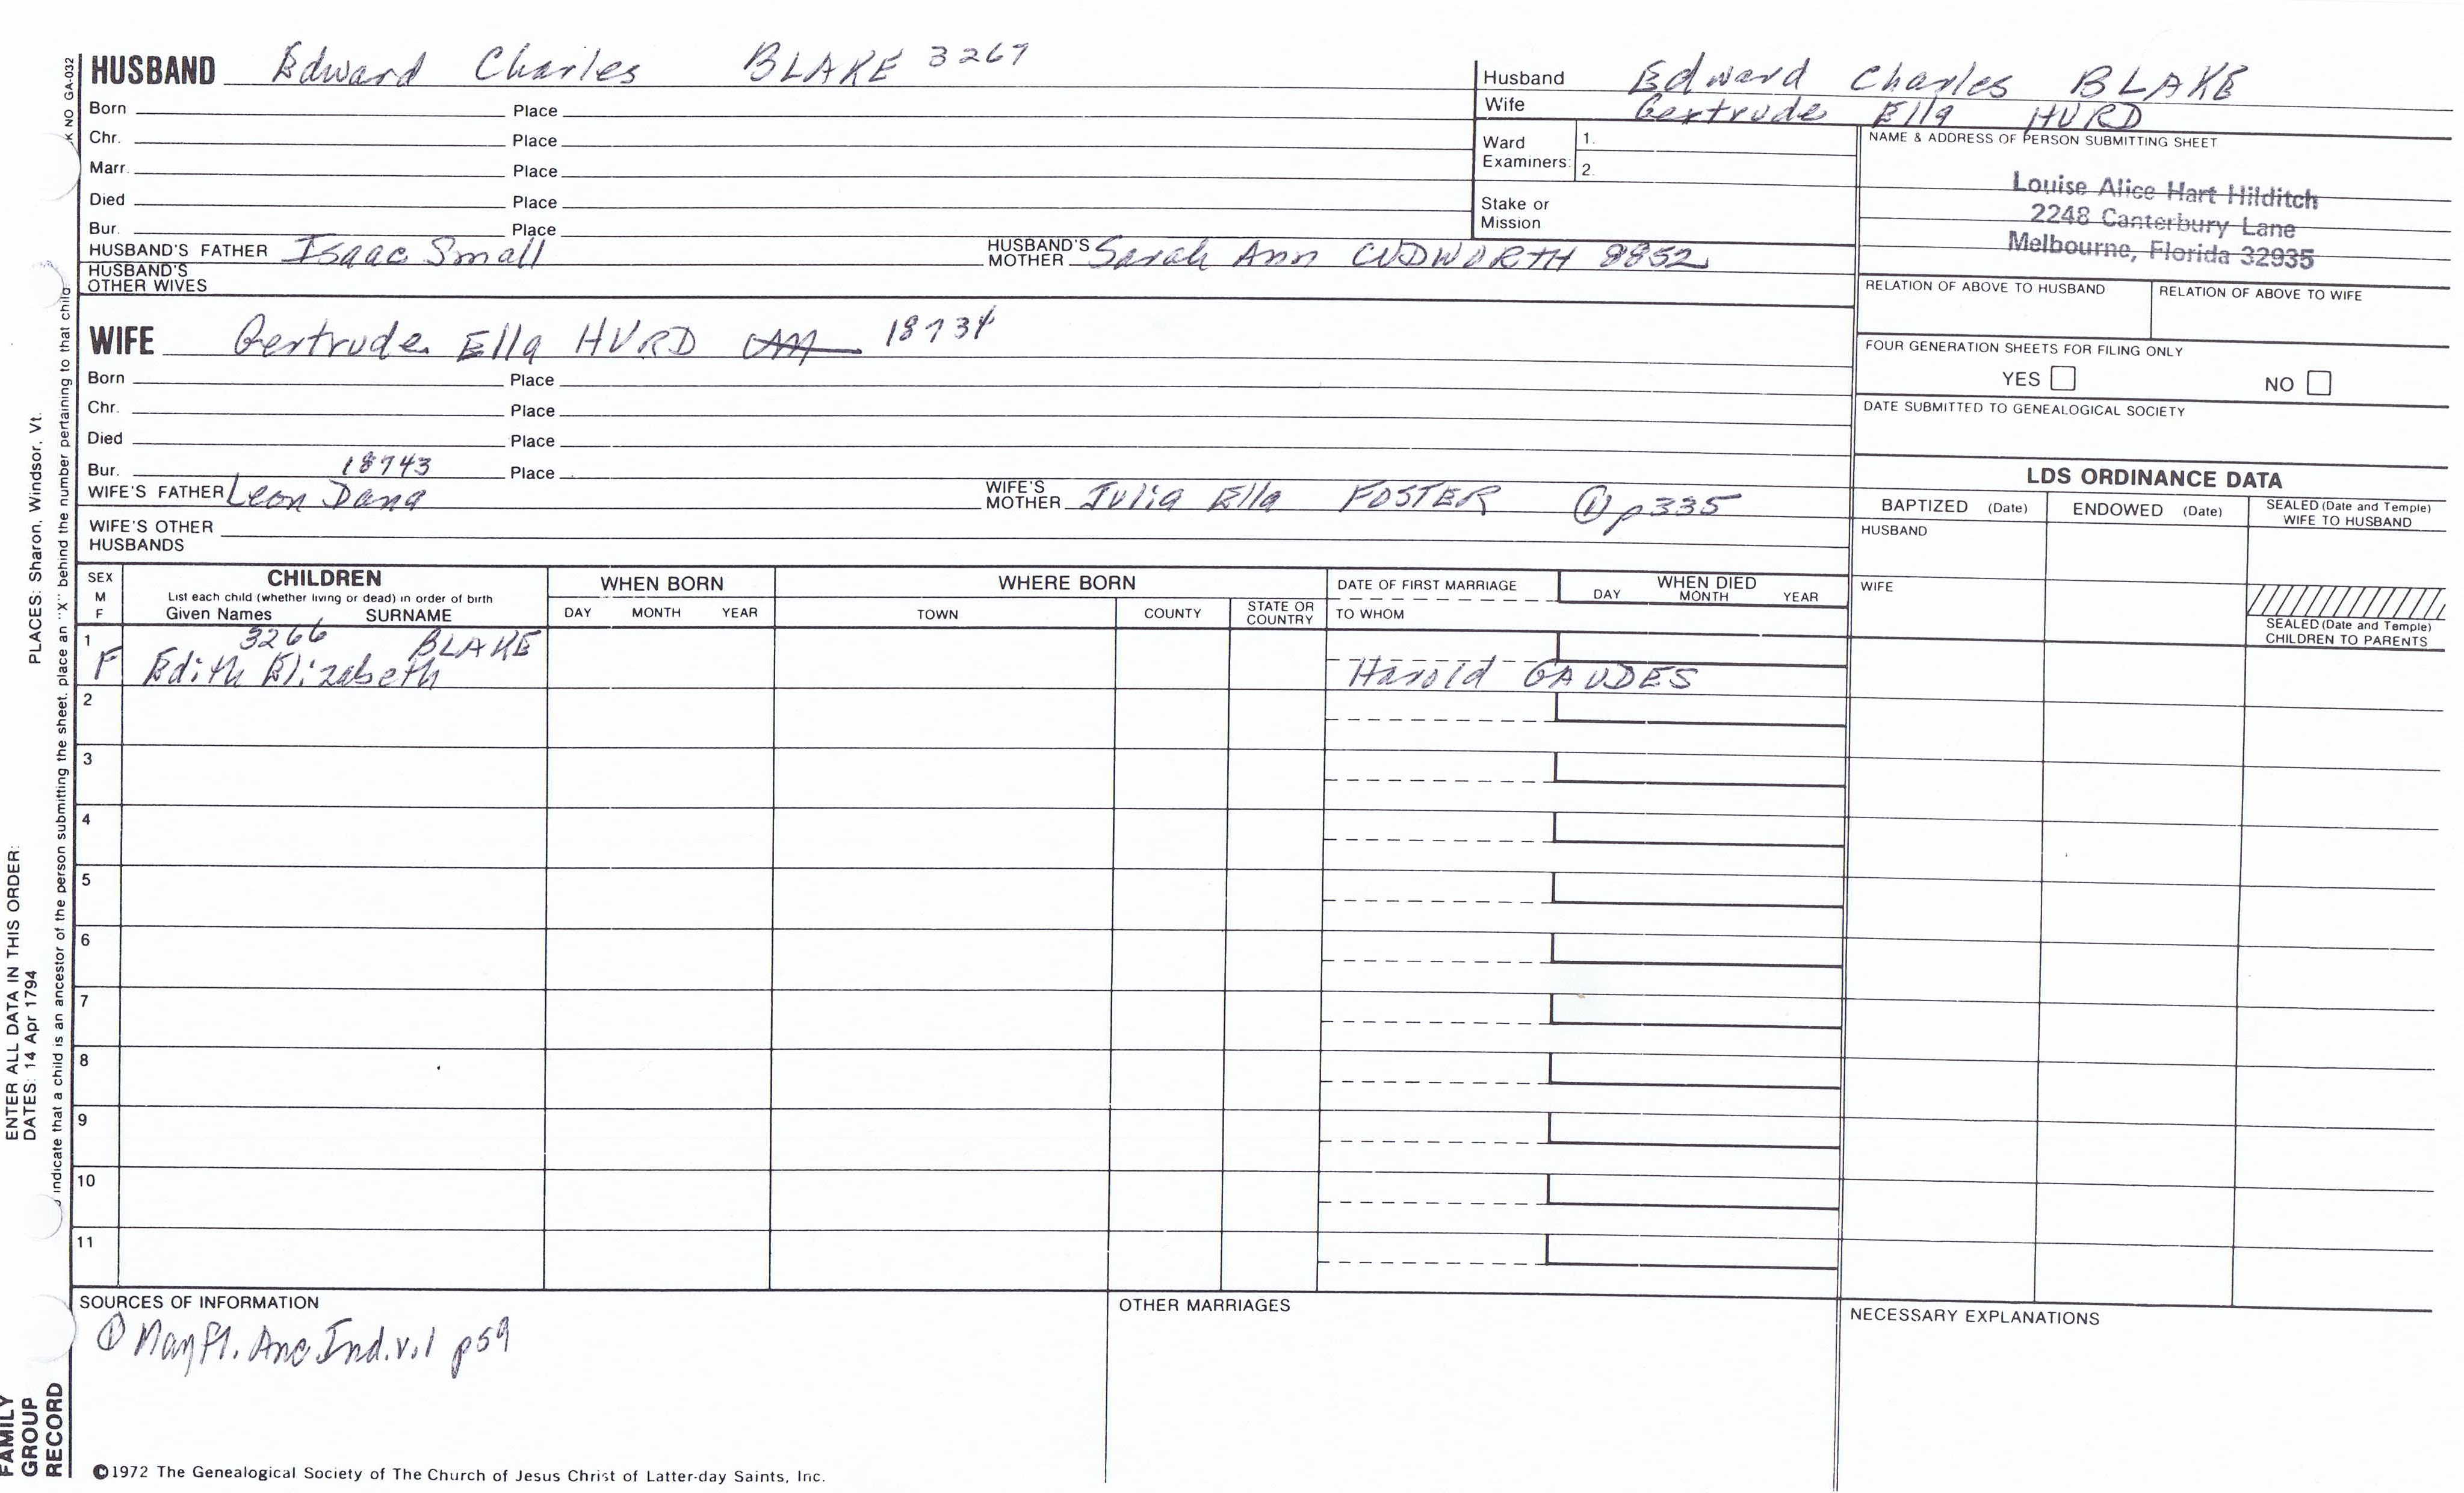 HUSBAND Edward Charles BLAKE 3267
Born Place
Chr. Place
Marr. Place
Died Place
Bur. Place
HUSBAND'S FATHER Isaac Small HUSBAND'S MOTHER Sarah Ann CUDWORTH 8852
HUSBAND'S OTHER WIVES
WIFE Gertrude Ella HURD 18734
Born Place
Chr. Place
Died Place
Bur. 18743 Place
WIFE'S FATHER Leon Dana WIFE'S MOTHER Julia Ella FOSTER ① p335
WIFE'S OTHER HUSBANDS
Husband Edward Charles BLAKE
Wife Gertrude Ella HURD
Ward Examiners: 1.
2.
Stake or Mission
NAME & ADDRESS OF PERSON SUBMITTING SHEET
Louise Alice Hart Hilditch
2248 Canterbury Lane
Melbourne, Florida 32935
RELATION OF ABOVE TO HUSBAND RELATION OF ABOVE TO WIFE
FOUR GENERATION SHEETS FOR FILING ONLY
YES NO
DATE SUBMITTED TO GENEALOGICAL SOCIETY
LDS ORDINANCE DATA
BAPTIZED (Date) ENDOWED (Date) SEALED (Date and Temple) WIFE TO HUSBAND
HUSBAND
WIFE
SEALED (Date and Temple)
CHILDREN TO PARENTS
SEX M F
CHILDREN
List each child (whether living or dead) in order of birth
Given Names SURNAME
WHEN BORN
DAY MONTH YEAR
WHERE BORN
TOWN COUNTY STATE OR COUNTRY
DATE OF FIRST MARRIAGE
TO WHOM
WHEN DIED
DAY MONTH YEAR
1 3266 BLAKE
F Edith Elizabeth Harold GAUDES
2
3
4
5
6
7
8
9
10
11
SOURCES OF INFORMATION
① Mayfl. Anc. Ind. v.1 p59
OTHER MARRIAGES
NECESSARY EXPLANATIONS
©1972 The Genealogical Society of The Church of Jesus Christ of Latter-day Saints, Inc.
FAMILY
GROUP
RECORD
ENTER ALL DATA IN THIS ORDER:
DATES: 14 Apr 1794
PLACES: Sharon, Windsor, Vt.
indicate that a child is an ancestor of the person submitting the sheet, place an "X" behind the number pertaining to that child
K NO GA-032